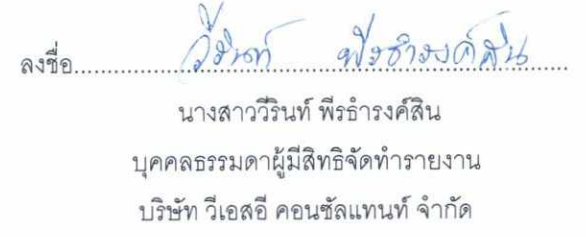 ลงชื่อ.......วีรินท์ พีรธำรงค์สิน.......
นางสาววีรินท์ พีรธำรงค์สิน
บุคคลธรรมดาผู้มีสิทธิจัดทำรายงาน
บริษัท วีเอสอี คอนซัลแทนท์ จำกัด